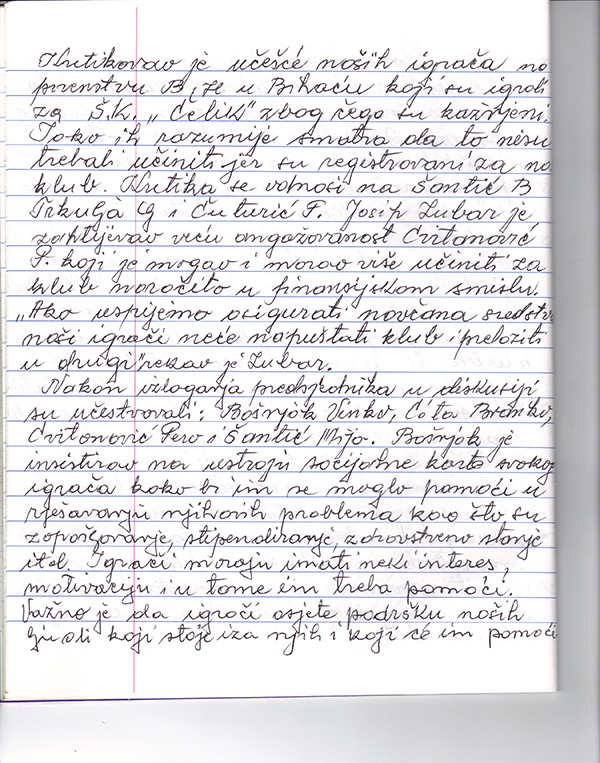 Kritikovao je učešće naših igrača na
prvenstvu B,ze u Bihaću koji su igrali
za Š.K. „Čelik" zbog čega su kažnjeni.
Iako ih razumije smatra da to nisu
trebali učiniti jer su registrovani za na
klub. Kritika se odnosi na Šantić B
Trkulja G i Čuturić F. Josip Lubar je
zahtijevao veću angažovanost Cvitanović
P. koji je mogao i morao više učiniti za
klub naročito u finansijskom smislu.
„Ako uspijemo osigurati novčana sredstva
naši igrači neće napuštati klub i prelaziti
u drugi" rekao je Lubar.
Nakon izlaganja predsjednika u diskusiji
su učestvovali: Bošnjak Vinko, Ćota Branko,
Cvitanović Pero i Šantić Iljo. Bošnjak je
insistirao na ustroju socijalne karte svakog
igrača kako bi im se moglo pomoći u
rješavanju njihovih problema kao što su
zapošljavanje, stipendiranje, zdravstveno stanje
itd. Igrači moraju imati neki interes,
motivaciju i u tome im treba pomoći.
Važno je da igrači osjete podršku naših
ljudi koji stoje iza njih i koji će im pomoći